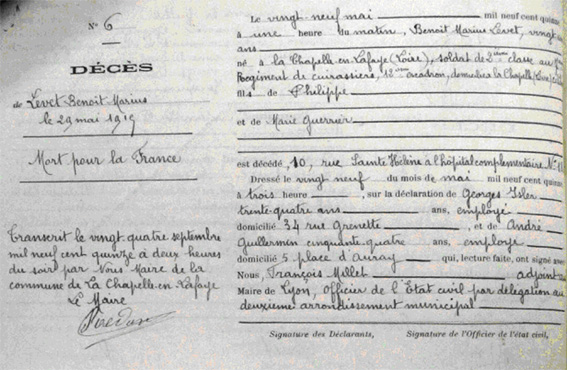 N° 6
DÉCÈS
de Levet Benoit Marius
le 29 mai 1915
Mort pour la France
Transcrit le vingt quatre septembre
mil neuf cent quinze à deux heures
du soir par Nous Maire de la
commune de La Chapelle-en-Lafaye
Le Maire
Le vingt neuf mai mil neuf cent quinze
à une heure du matin, Benoit Marius Levet, vingt
ans
né à la Chapelle-en-Lafaye (Loire), soldat de 2ème classe au
Régiment de cuirassiers, escadron, domicilié à la Chapelle
fils de Philippe
et de Marie Guerrier
est décédé, 10, rue Sainte Hélène à l'hôpital complementaire N°
Dressé le vingt neuf du mois de mai mil neuf cent quinze
à trois heure, sur la déclaration de Georges Isler
trente-quatre ans ans, employé
domicilié 34 rue Grenette, et de André
Guillermin cinquante-quatre ans, employé
domicilié 5 place d'Ainay qui, lecture faite, ont signé avec
Nous, François Millet adjoint au
Maire de Lyon, Officier de l'État civil par délégation au
deuxième arrondissement municipal
Signature des Déclarants, Signature de l'Officier de l'état civil,